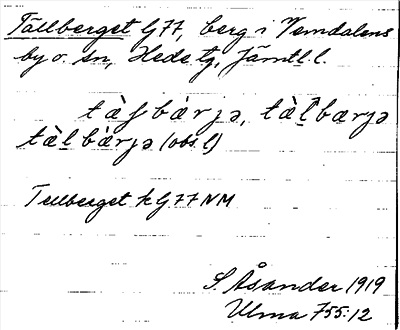 Tällberget G77, berg i Vemdalens
by o. sn, Hede tg, Jämtl. l.
tàʃbàrjə, tàl̂bærjə
tàl bàrjə (obs. l)
Tellberget k G77NM
S. Åsander 1919
Ulma 755:12